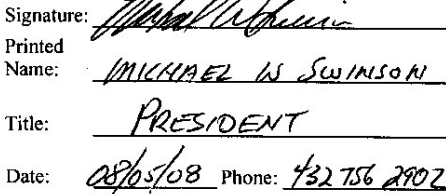 Signature:
Printed
Name: MICHAEL W SWINSON
Title: PRESIDENT
Date: 08/05/08 Phone: 432 756 2902